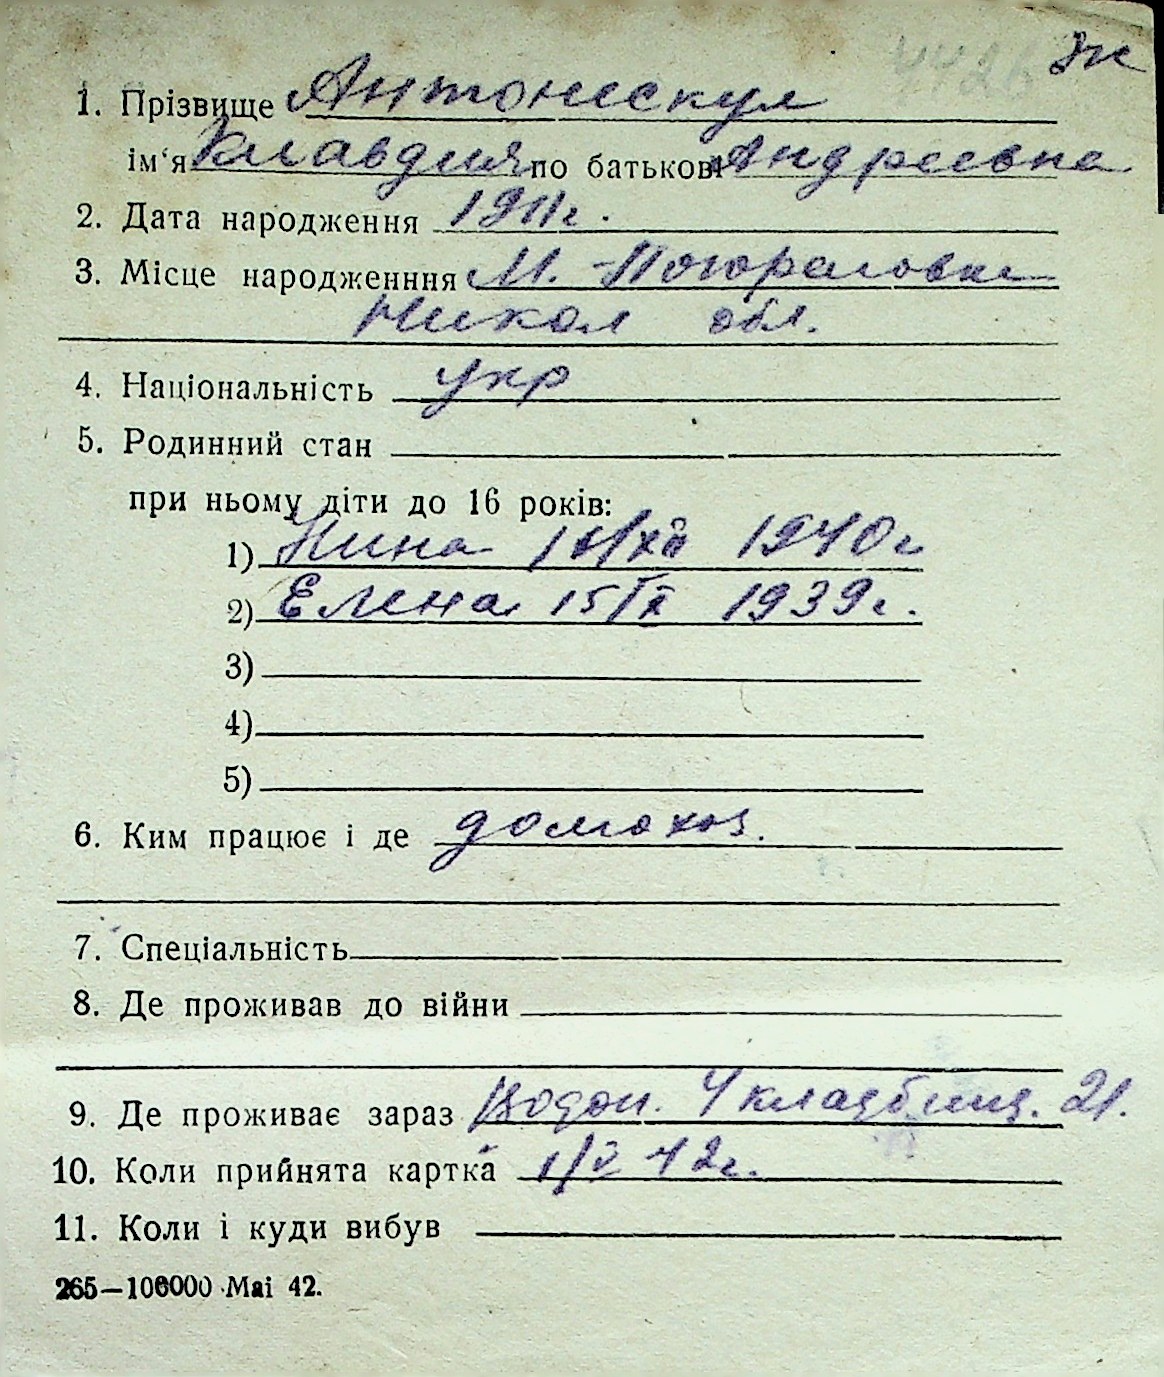 4426 Эк
1. Прізвище Антонескул
ім'я Клавдия по батькові Андреевна
2. Дата народження 1911 г.
3. Місце народженння М. Погореловка
Никол обл.
4. Національність укр
5. Родинний стан
при ньому діти до 16 років:
1) Нина XII 1940 г
2) Елена 15/IX 1939 г.
3)
4)
5)
6. Ким працює і де домохоз.
7. Спеціальність
8. Де проживав до війни
9. Де проживає зараз Водоп. 4 кладбищ. 21.
10. Коли прийнята картка 1/V 42 г.
11. Коли і куди вибув
265—106000 Маі 42.